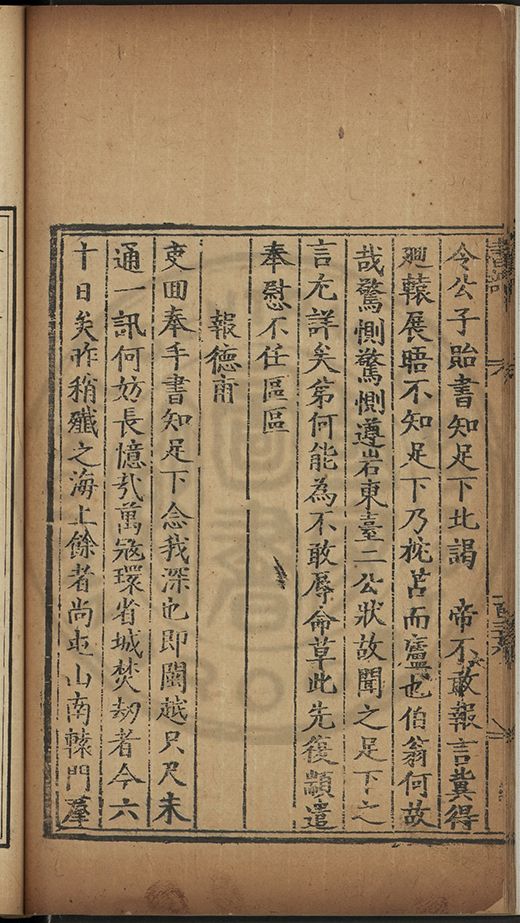 令公子貽書知足下北謁　帝不敢報言冀得
𢌞轅展晤不知足下乃枕苫而廬也伯翁何故
哉驚惻驚惻遵岩東臺二公狀故聞之足下之
言尤詳矣第何能為不敢辱命草此先復顓遣
奉慰不任區區
報德甫
吏回奉手書知足下念我深也即閩越只尺未
通一訊何妨長憶哉萬寇環省城焚刼者今六
十日矣昨稍殲之海上餘者尚屯山南轅門羣